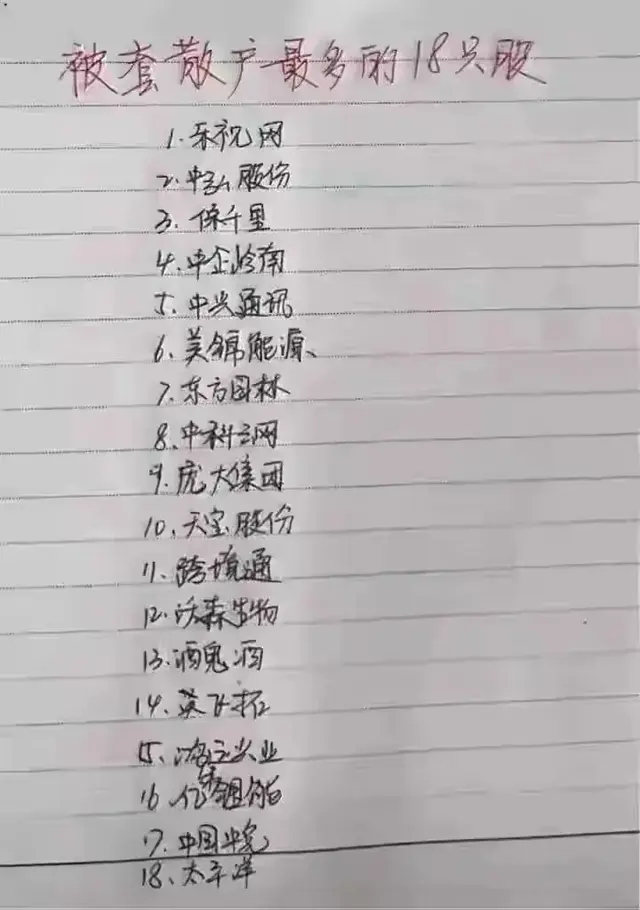 被套散户最多的18只股
1.乐视网
2.中弘股份
3.保千里
4.中企岭南
5.中兴通讯
6.美锦能源、
7.东方园林
8.中科云网
9.庞大集团
10.天宝股份
11.跨境通
12.沃森生物
13.酒鬼酒
14.英飞拓
15.业
16.亿
17.中国
18.太平洋